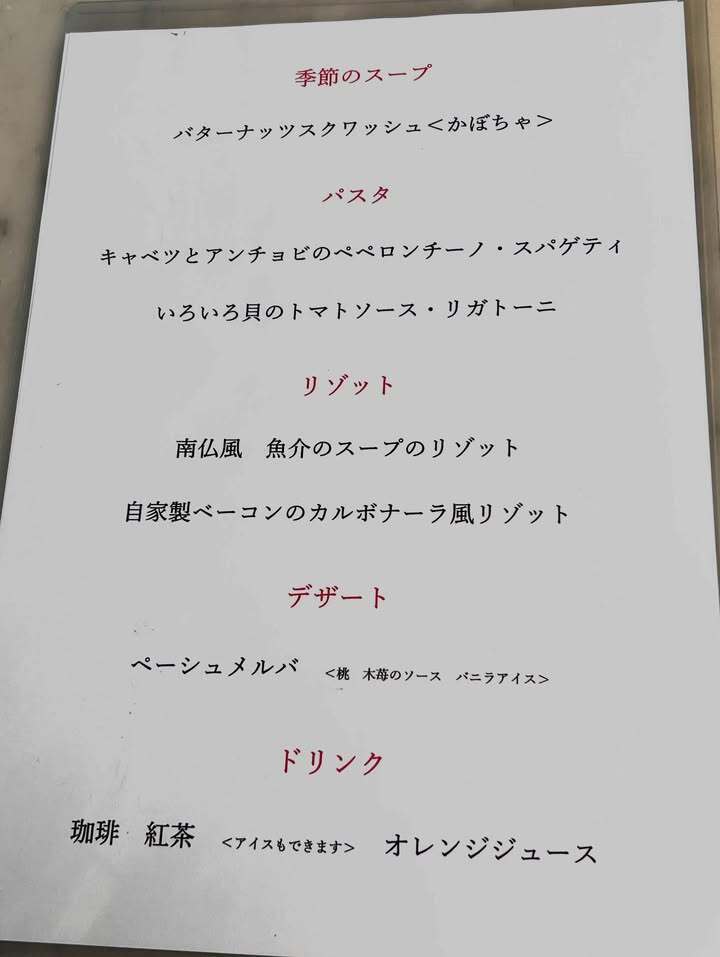 季節のスープ
バターナッツスクワッシュ<かぼちゃ>
パスタ
キャベツとアンチョビのペペロンチーノ・スパゲティ
いろいろ貝のトマトソース・リガトーニ
リゾット
南仏風　魚介のスープのリゾット
自家製ベーコンのカルボナーラ風リゾット
デザート
ペーシュメルバ　<桃　木苺のソース　バニラアイス>
ドリンク
珈琲　紅茶　<アイスもできます>　オレンジジュース